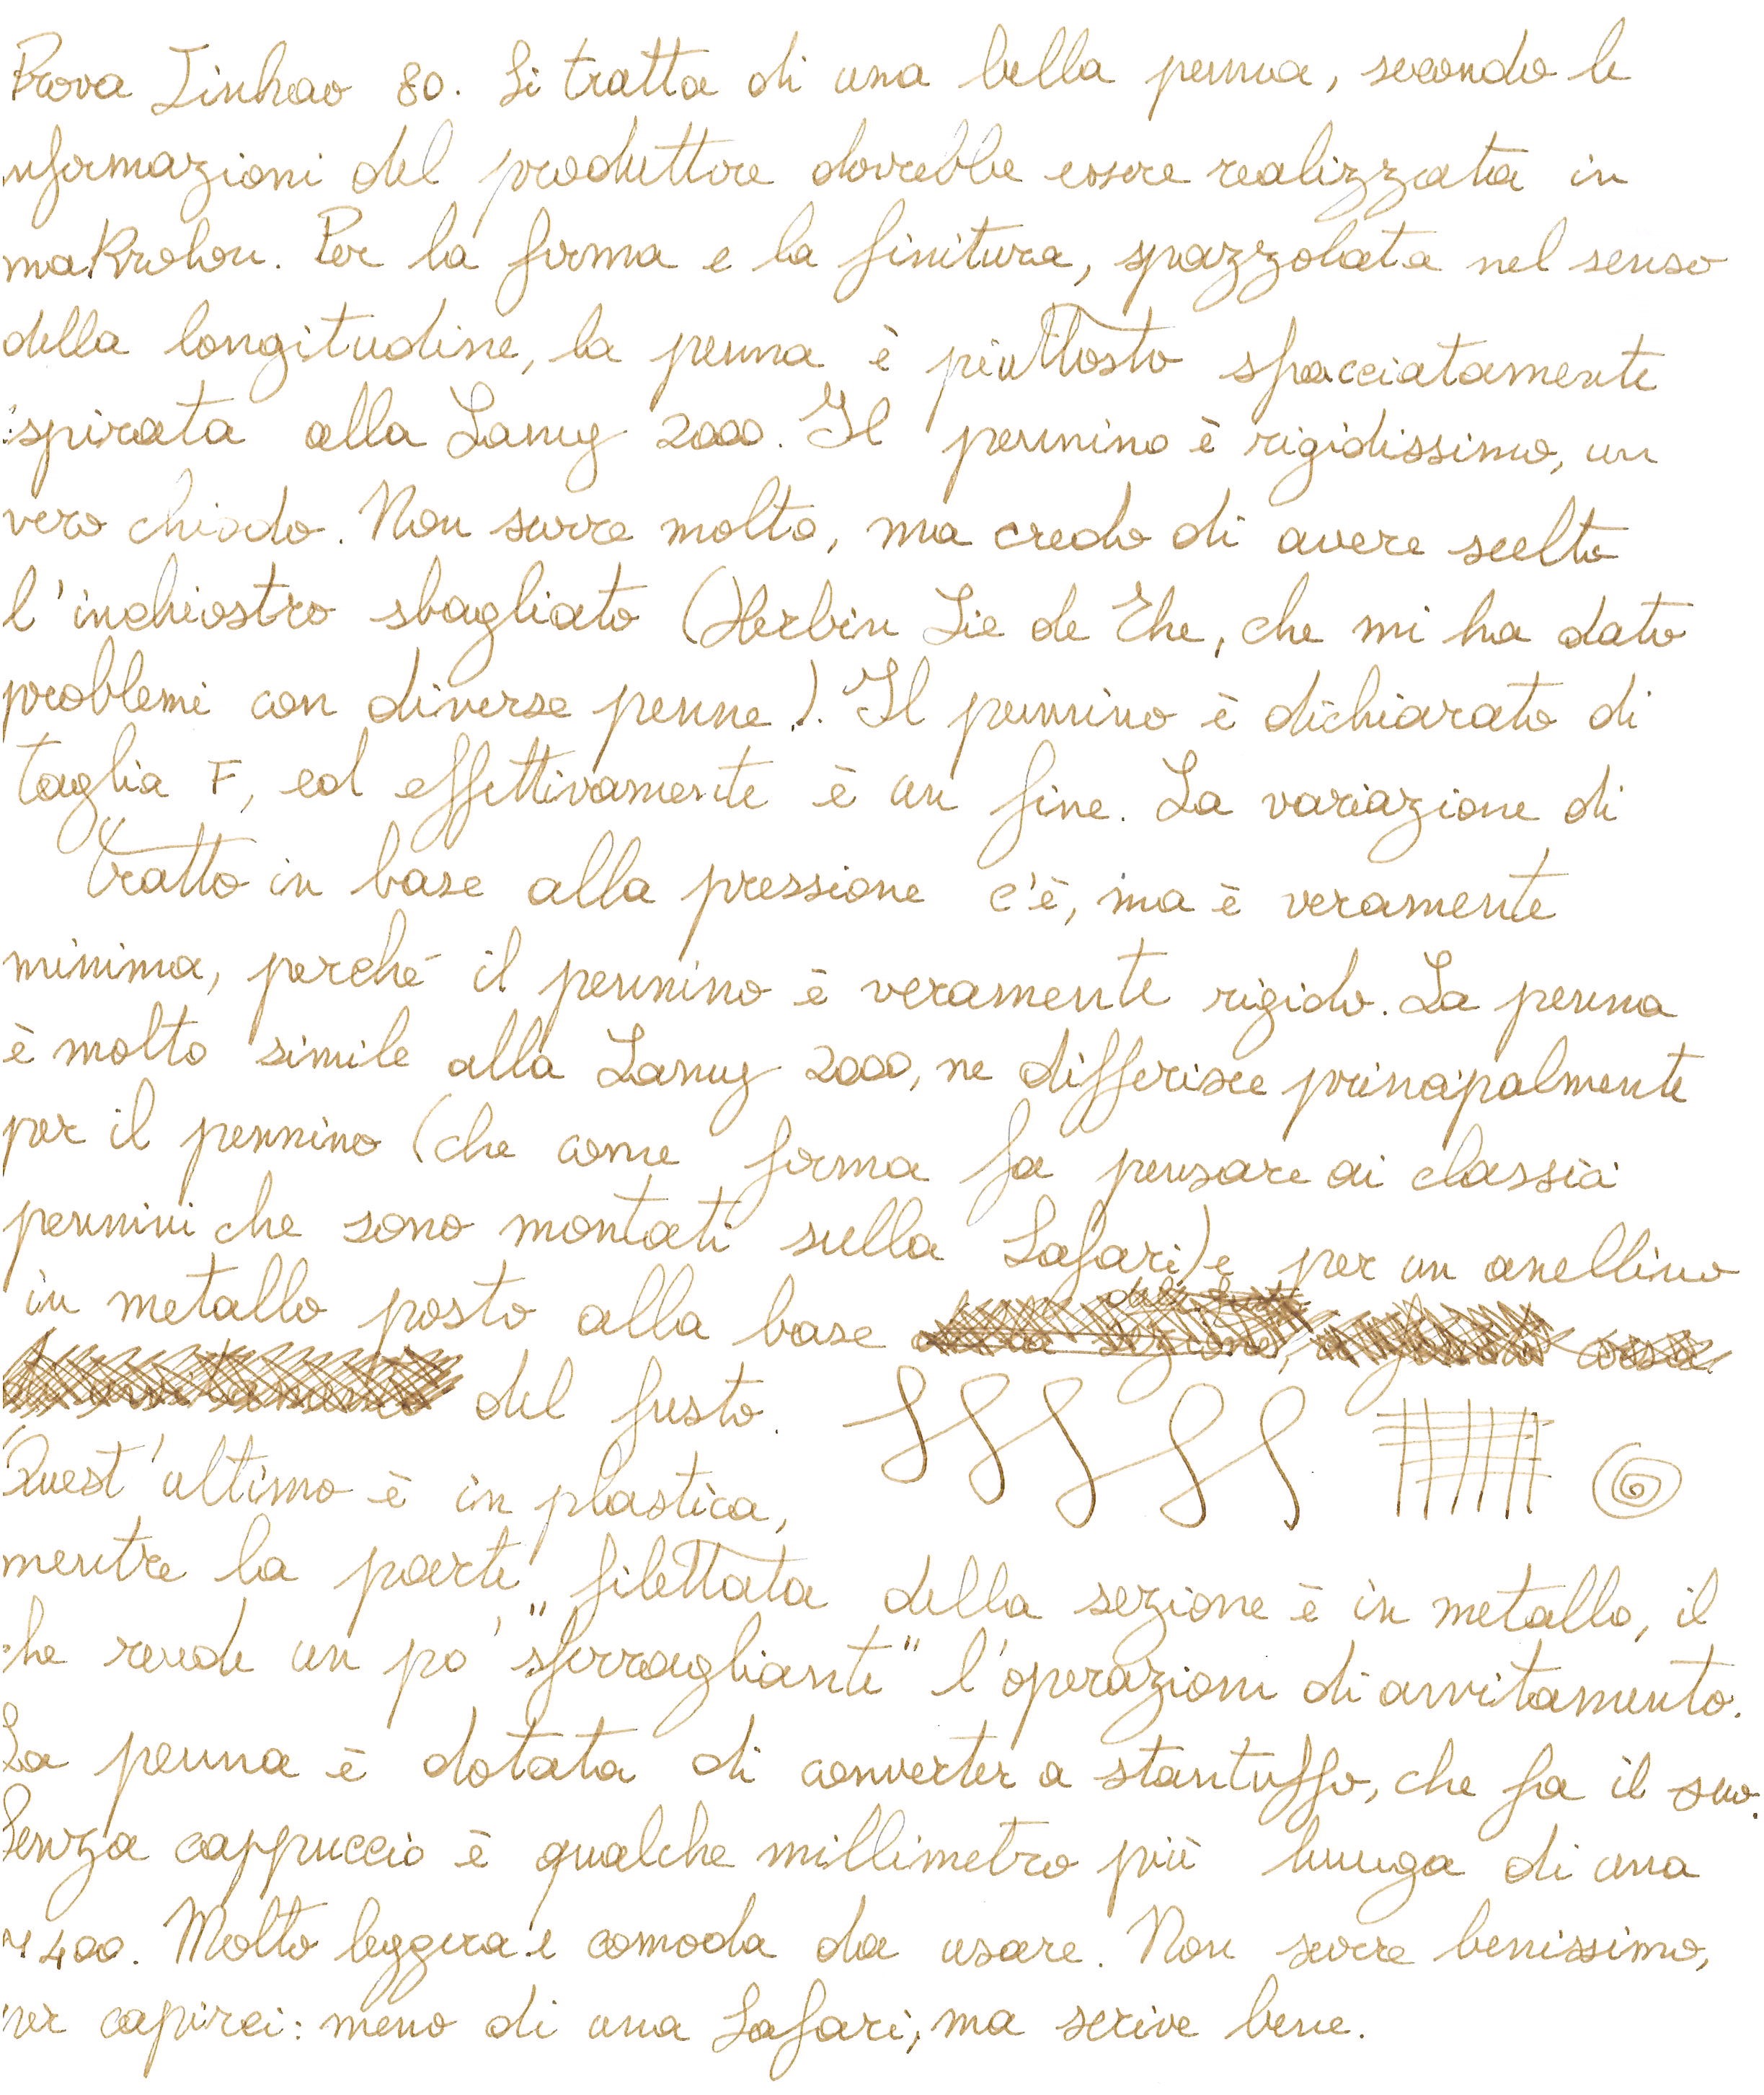 Prova Jinhao 80. Si tratta di una bella penna, secondo le
nformazioni del produttore dovrebbe essere realizzata in
makrolon. Per la forma e la finitura, spazzolata nel senso
della longitudine, la penna è piuttosto spacciatamente
ispirata alla Lamy 2000. Il pennino è rigidissimo, un
vero chiodo. Non scorre molto, ma credo di avere scelto
l'inchiostro sbagliato (Herbin Lie de Thé, che mi ha dato
problemi con diverse penne). Il pennino è dichiarato di
taglia F, ed effettivamente è un fine. La variazione di
tratto in base alla pressione c'è, ma è veramente
minima, perché il pennino è veramente rigido. La penna
è molto simile alla Lamy 2000, ne differisce principalmente
per il pennino (che come forma fa pensare ai classici
pennini che sono montati sulla Safari) e per un anellino
in metallo posto alla base
del fusto.
Quest'ultimo è in plastica,
mentre la parte filettata della sezione è in metallo, il
che rende un po' "sferragliante" l'operazioni di avvitamento.
La penna è dotata di converter a stantuffo, che fa il suo.
Senza cappuccio è qualche millimetro più lunga di una
M400. Molto leggera e comoda da usare. Non scorre benissimo,
per capirci: meno di una Safari, ma scrive bene.